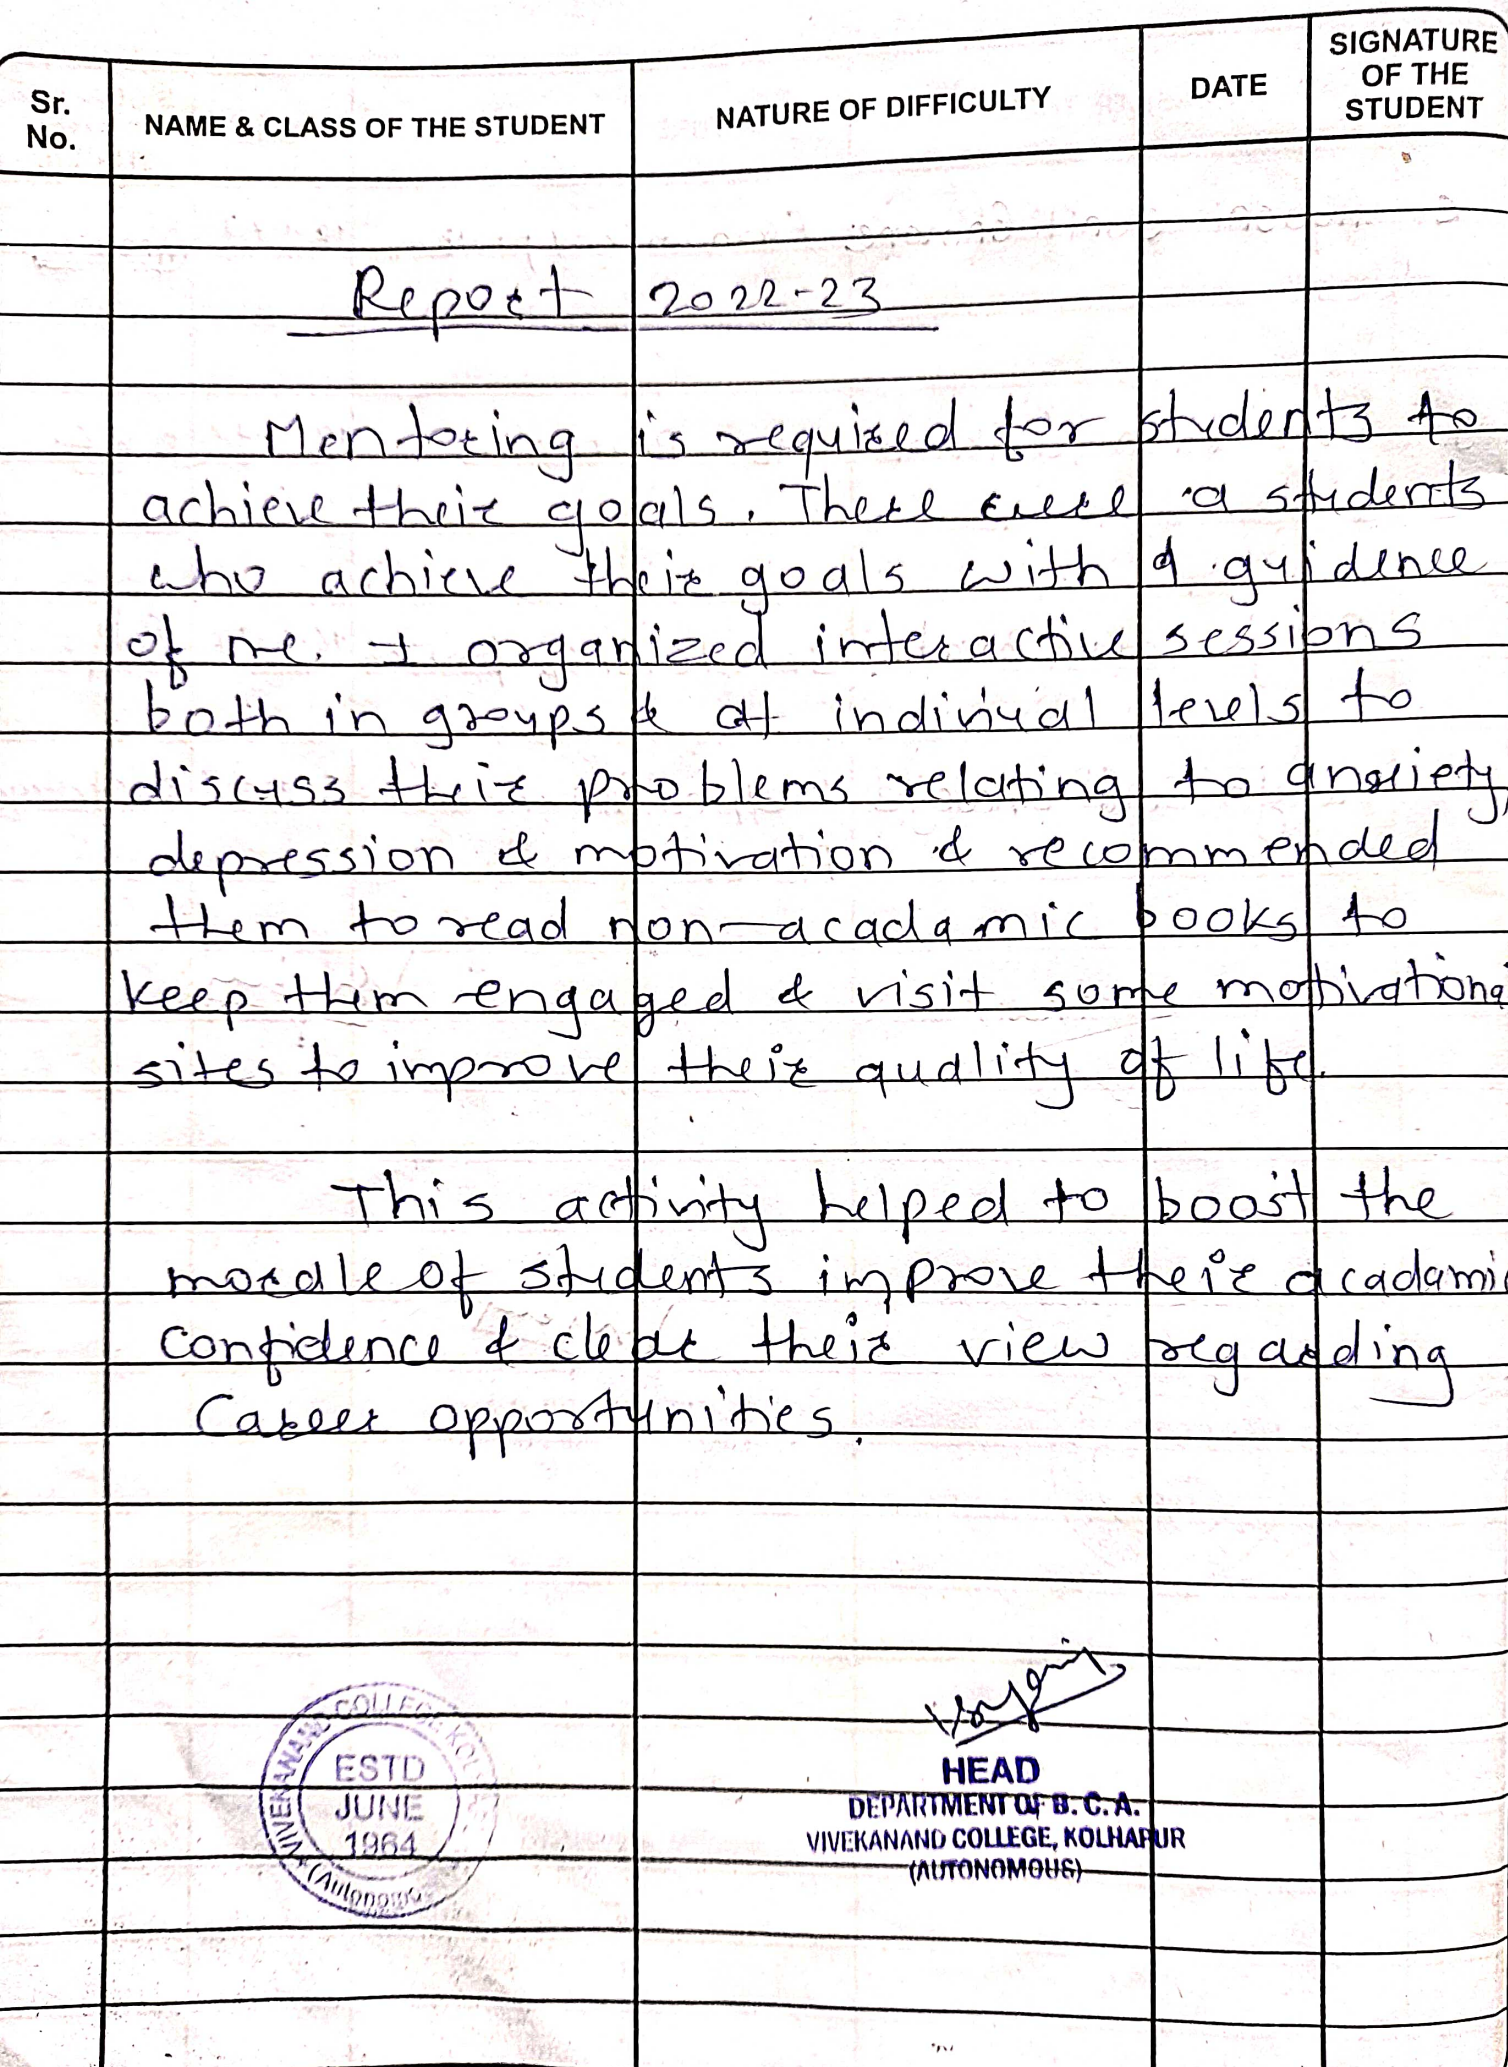 Sr. No.
NAME & CLASS OF THE STUDENT
NATURE OF DIFFICULTY
DATE
SIGNATURE OF THE STUDENT
Report 2022-23
Mentoring is required for students to
achieve their goals. There were a students
who achieve their goals with a guidence
of me. I organized interactive sessions
both in groups & at indiviual levels to
discuss their problems relating to anxiety,
depression & motivation & recommended
them to read non-acadamic books to
keep them engaged & visit some motivationa
sites to improve their quality of life.
This activity helped to boost the
morale of students improve their acadamic
confidence & clear their view regarding
Career opportunities.
VIVEKANAND COLLEGE, KOL
ESTD
JUNE
1964
(Autonomo
HEAD
DEPARTMENT OF B. C. A.
VIVEKANAND COLLEGE, KOLHAPUR
(AUTONOMOUS)